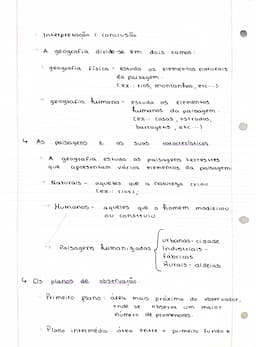 Interpretação / conclusão
A geografia divide-se em dois ramos:
geografia física - estuda os elementos naturais
da paisagem.
(ex.: rios, montanhas, etc...)
geografia humana - estuda os elementos
humanos da paisagem.
(ex.: casas, estradas,
barragens, etc...)
As paisagens e as suas características.
A geografia estuda as paisagens terrestres
que apresentam vários elementos da paisagem:
Naturais - aqueles que a natureza criou
(ex.: rios);
Humanos - aqueles que o homem modificou
ou construiu.
Paisagens humanizadas
urbanas - cidade
Industriais -
fábricas
Rurais - aldeias
Os planos de observação
Primeiro plano: área mais próxima do observador,
onde se observa um maior
número de pormenores.
Plano intermédio: área entre o primeiro fundo e